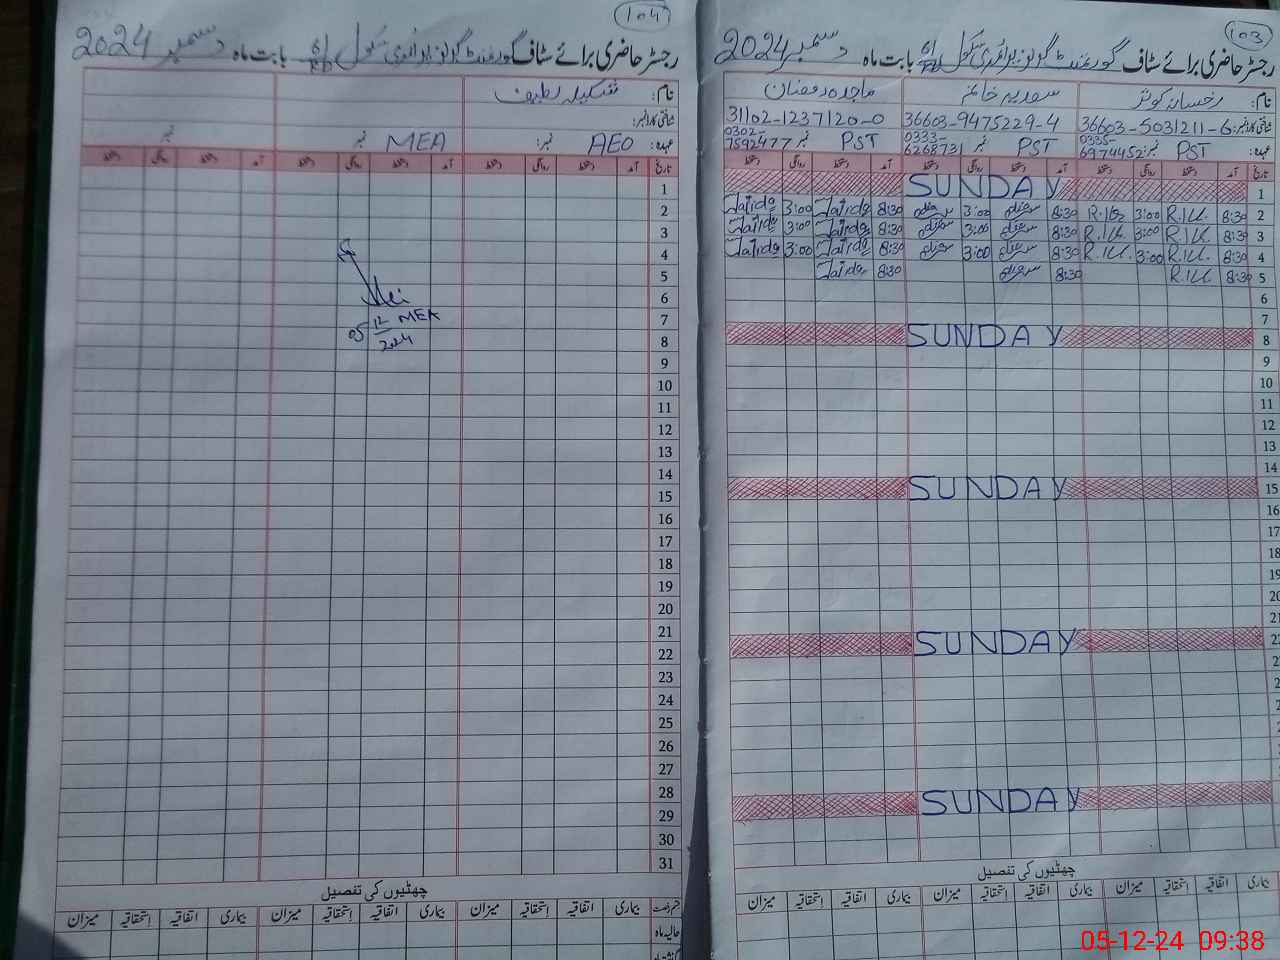 104
رجسٹر حاضری برائے سٹاف گورنمنٹ گرلز پرائمری سکول بابت ماہ دسمبر 2024
نام: شکیلہ لطیف
شناختی کارڈ نمبر:
عہدہ: AEO نمبر: MEA نمبر نمبر
تاریخ آمد دستخط روانگی دستخط آمد دستخط روانگی دستخط آمد دستخط روانگی دستخط
1
2
3
4
5
6
7
8
9
10
11
12
13
14
15
16
17
18
19
20
21
22
23
24
25
26
27
28
29
30
31
MEA
05 12 2024
چھٹیوں کی تفصیل
قسم رخصت بیماری اتفاقیہ استحقاقیہ میزان بیماری اتفاقیہ استحقاقیہ میزان بیماری اتفاقیہ استحقاقیہ میزان
حالیہ ماہ
103
رجسٹر حاضری برائے سٹاف گورنمنٹ گرلز پرائمری سکول بابت ماہ دسمبر 2024
نام: رخسانہ کوثر سعدیہ خانم ماجدہ رمضان
شناختی کارڈ نمبر: 36603-5031211-6 36603-9475229-4 31102-1237120-0
عہدہ: PST نمبر: 0335-6974452 PST نمبر 0333-6268731 PST نمبر 0302-7592477
تاریخ آمد دستخط روانگی دستخط آمد دستخط روانگی دستخط آمد دستخط روانگی دستخط
1 SUNDAY
2 8:30 R.K. 3:00 R.K. 8:30 سعدیہ 3:00 سعدیہ 8:30 3:00
3 8:30 R.K. 3:00 R.K. 8:30 سعدیہ 3:00 سعدیہ 8:30 3:00
4 8:30 R.K. 3:00 R.K. 8:30 سعدیہ 3:00 سعدیہ 8:30 3:00
5 8:30 R.K. 8:30 سعدیہ 8:30
6
7
8 SUNDAY
9
10
11
12
13
14
15 SUNDAY
16
17
18
19
20
21
SUNDAY
SUNDAY
چھٹیوں کی تفصیل
بیماری اتفاقیہ استحقاقیہ میزان بیماری اتفاقیہ استحقاقیہ میزان بیماری اتفاقیہ استحقاقیہ میزان
05-12-24 09:38